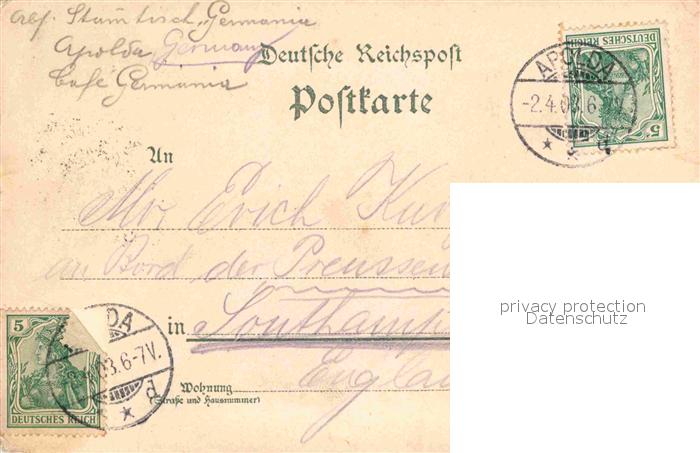 Abs. Stammtisch „Germania
Apolda Germany
Café Germania
Deutsche Reichspost
Postkarte
5
DEUTSCHES REICH
APOLDA
-2.4.03.6-7V.
An
Mr. Erich
an Bord der Preussen
in Southamp
Engla
Wohnung
(Straße und Hausnummer)
5
DEUTSCHES REICH
DA
.03.6-7V.
privacy protection
Datenschutz